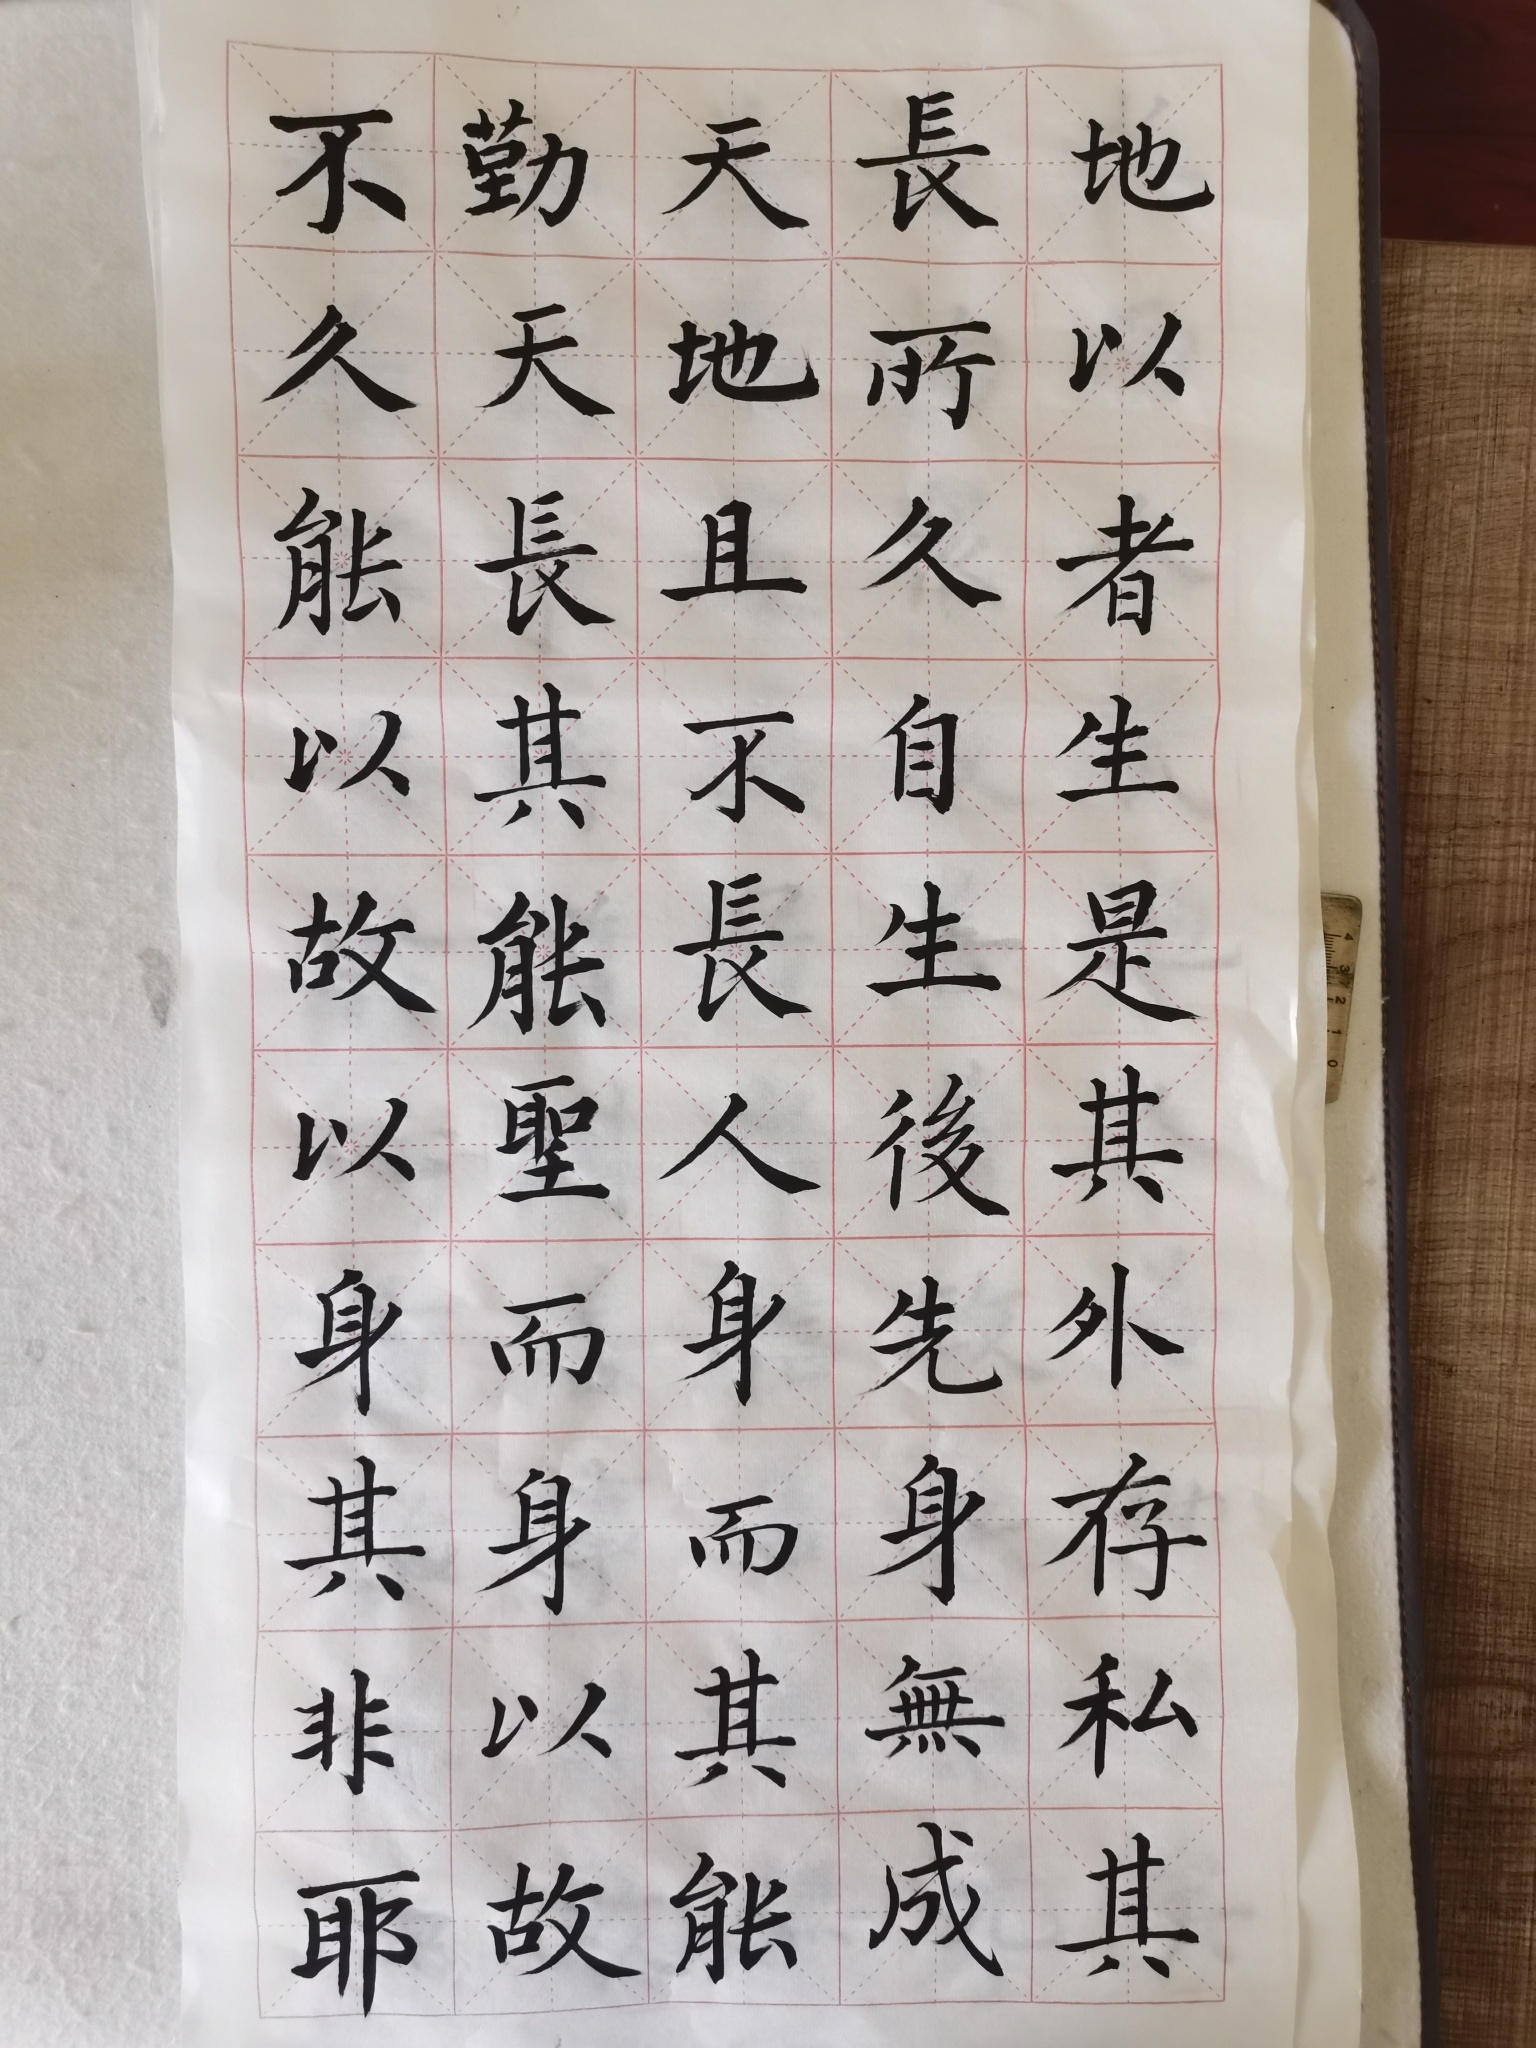 不勤天長地
久天地所以
能長且久者
以其不自生
故能長生是
以聖人後其
身而身先外
其身而身存
非以其無私
耶故能成其
4 3 2 1 0